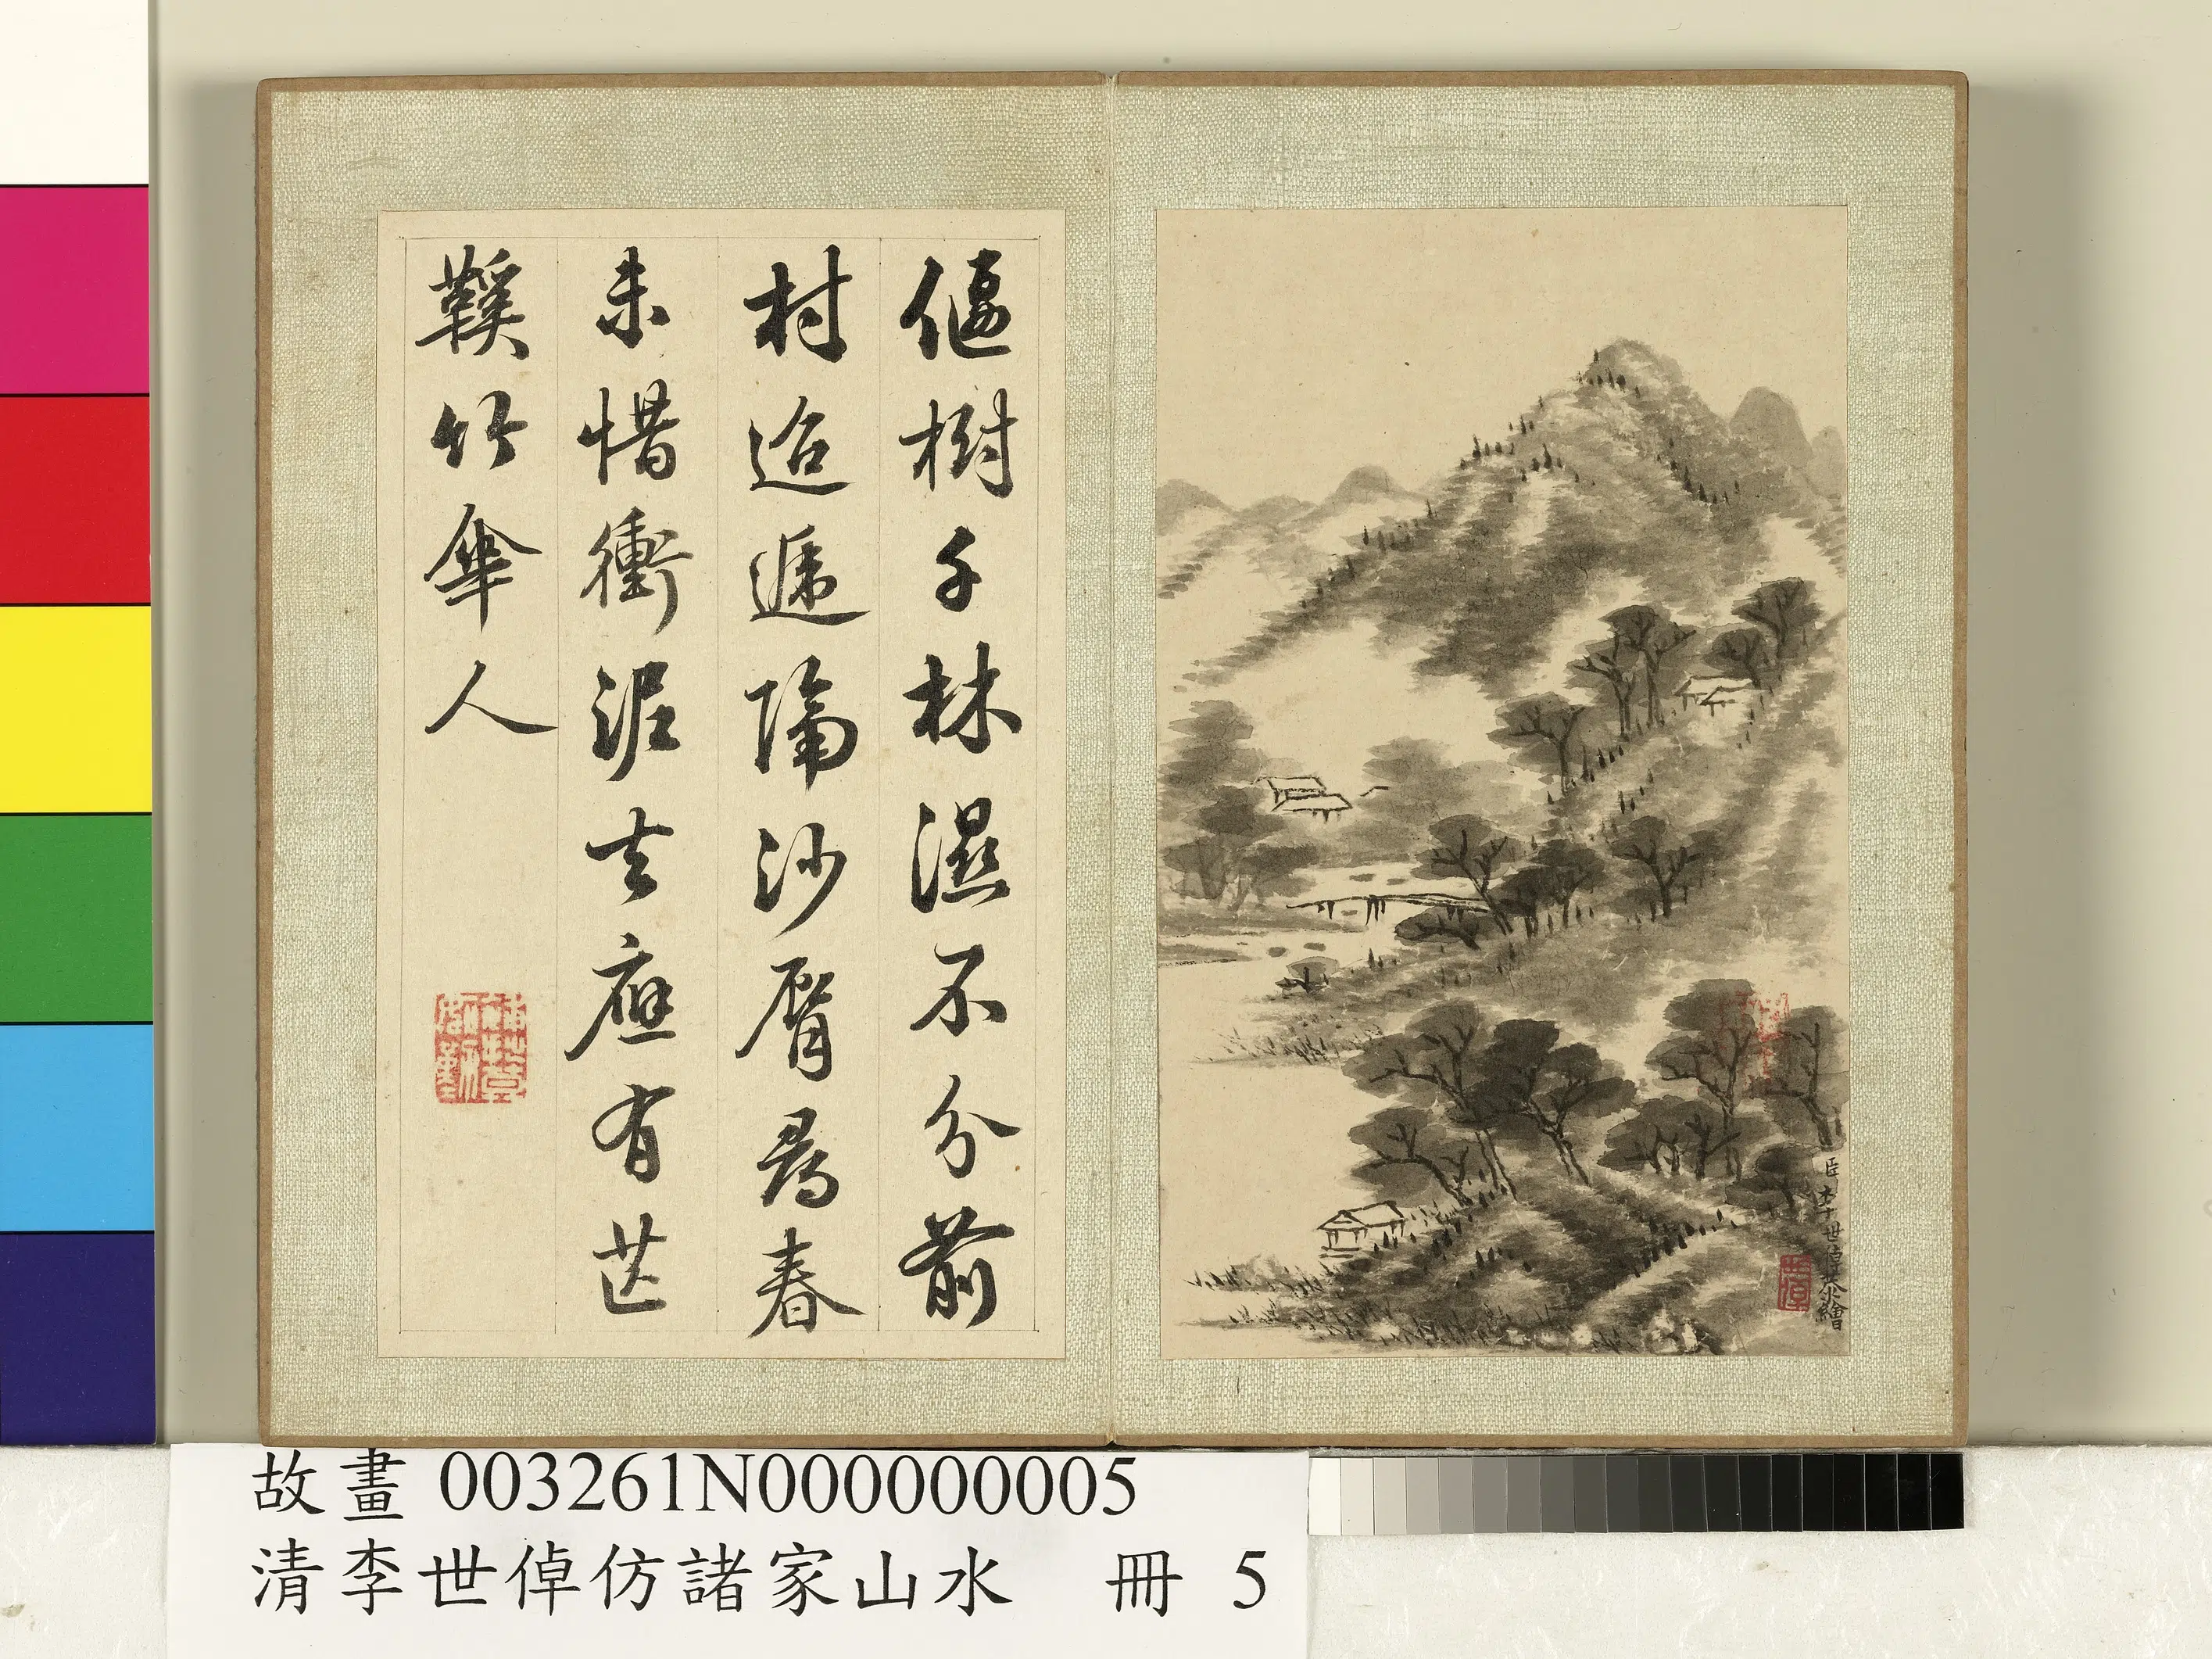 偃樹千林濕不分前
村迢遞隔沙脣尋春
未惜衝泥去應有芒
鞵竹傘人
臣李世倬恭繪
世倬
故畫 003261N000000005
清李世倬仿諸家山水 冊 5